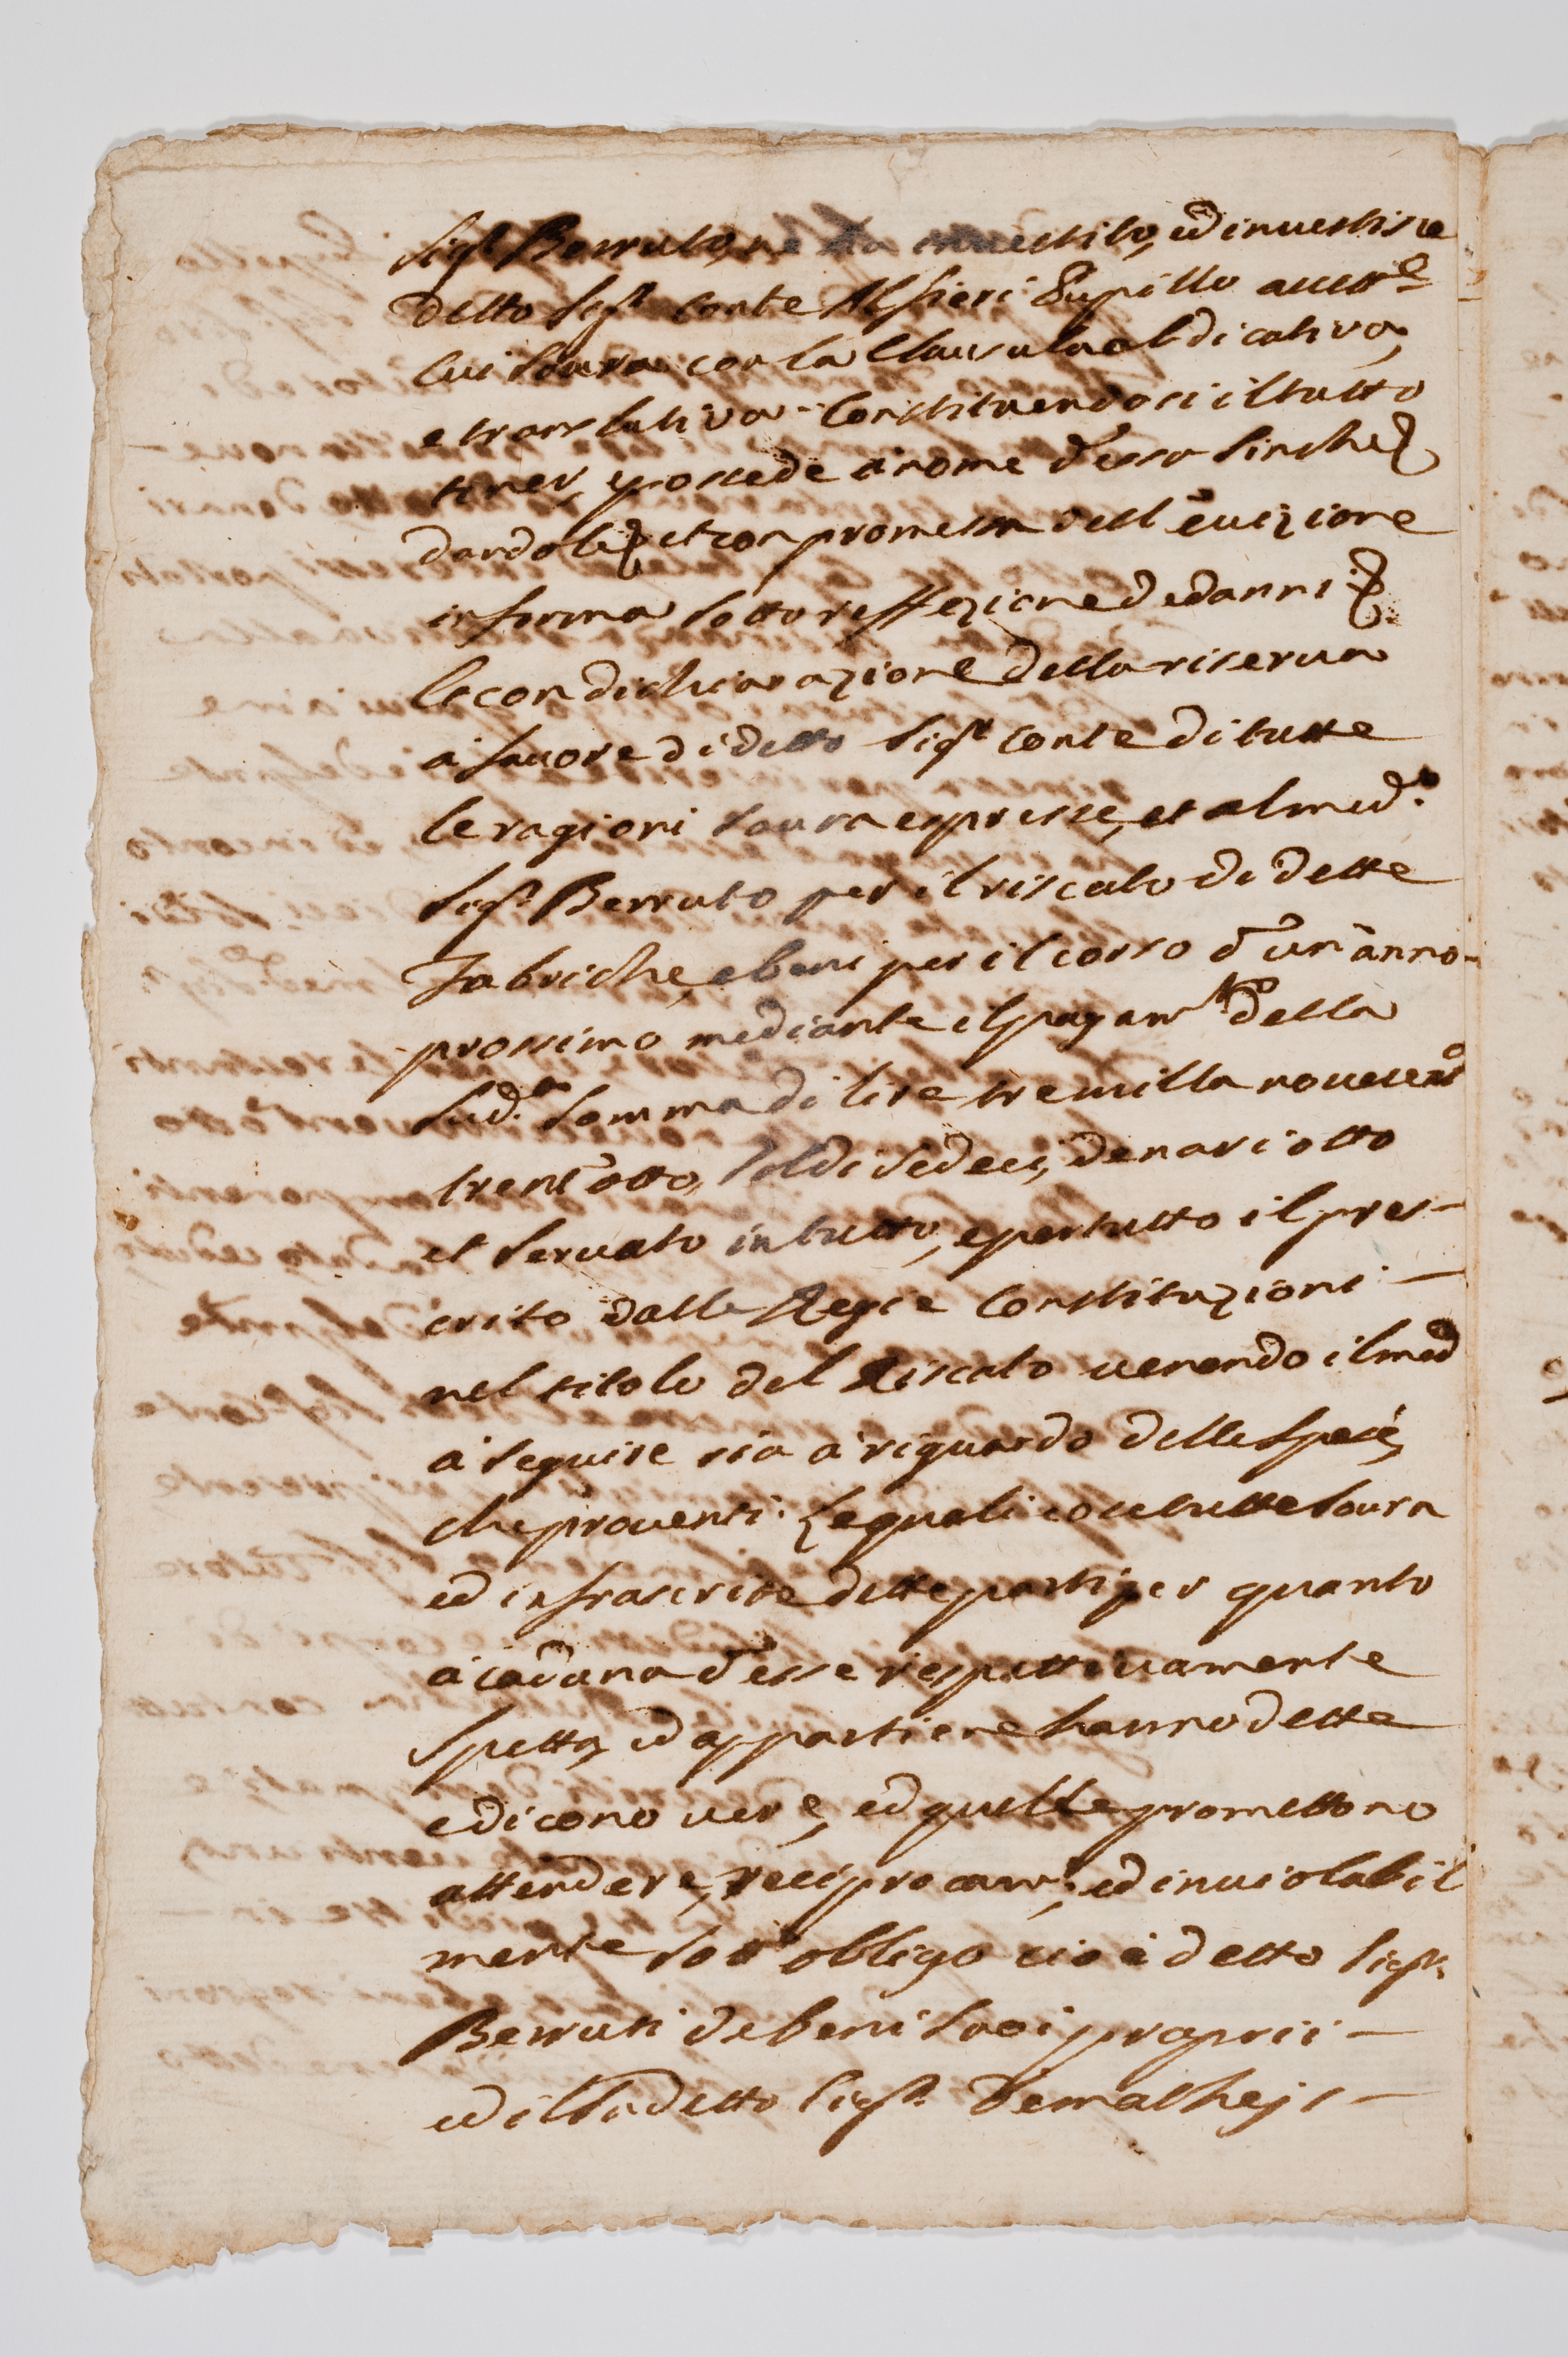 Sigr Berruto, ne ha investito, ed investisce
detto Sigr Conte Alfieri Pupillo accett.e
cui sovra con la Clausula abdicativa,
e translativa Constituendosi il tutto
tener, e possede à nome d'esso sinche
dandoli et con promessa dell'evizione
in forma sotto reffezione de danni
e con dichiarazione della riserva
à favore di detto Sigr Conte di tutte
le ragioni sovra espresse, et al med.o
Sigr Berruto per il riscato di dette
Fabriche, e beni per il corso d'un'anno
prossimo mediante il pagam.to della
sud.a somma di lire tre milla novecento
trent'otto, soldi sedeci, denari otto
et servato in tutto, e per tutto il pres-
crito dalle Regie Constituzioni
nel titolo del Riscato venendo il med
à seguire sia à riguardo delle spese,
che proventi. Le quali cose tutte sovra
ed infrascrite dette parti per quanto
à caduna d'esse respettivamente
spetta, ed appartiene hanno dette
e dicono vere, ed quelle promettono
attendere, reciprocam.e, ed inviolabil
mente sott'obligo cioè detto Sigr
Berruti de beni suoi proprii
ed il sudetto Sigr Demathejs